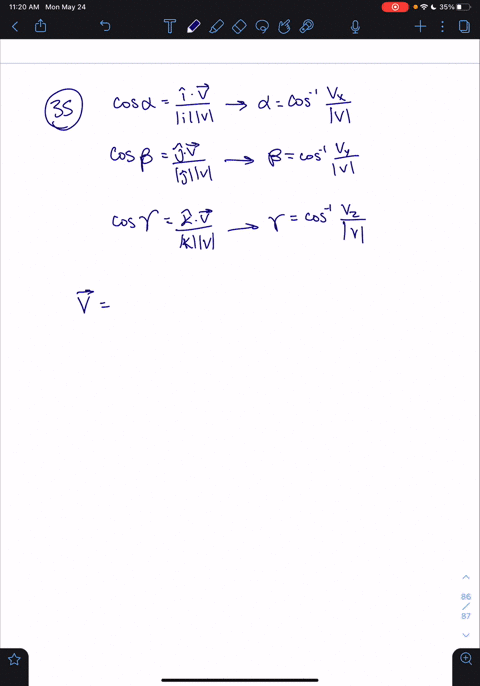 11:20 AM Mon May 24
35%
35
cos α = î · V⃗ / |i||v| → α = cos⁻¹ Vx / |V|
cos β = ĵ · V⃗ / |ĵ||v| → β = cos⁻¹ Vy / |v|
cos γ = k̂ · V⃗ / |k||v| → γ = cos⁻¹ Vz / |v|
V⃗ =
86
/
87